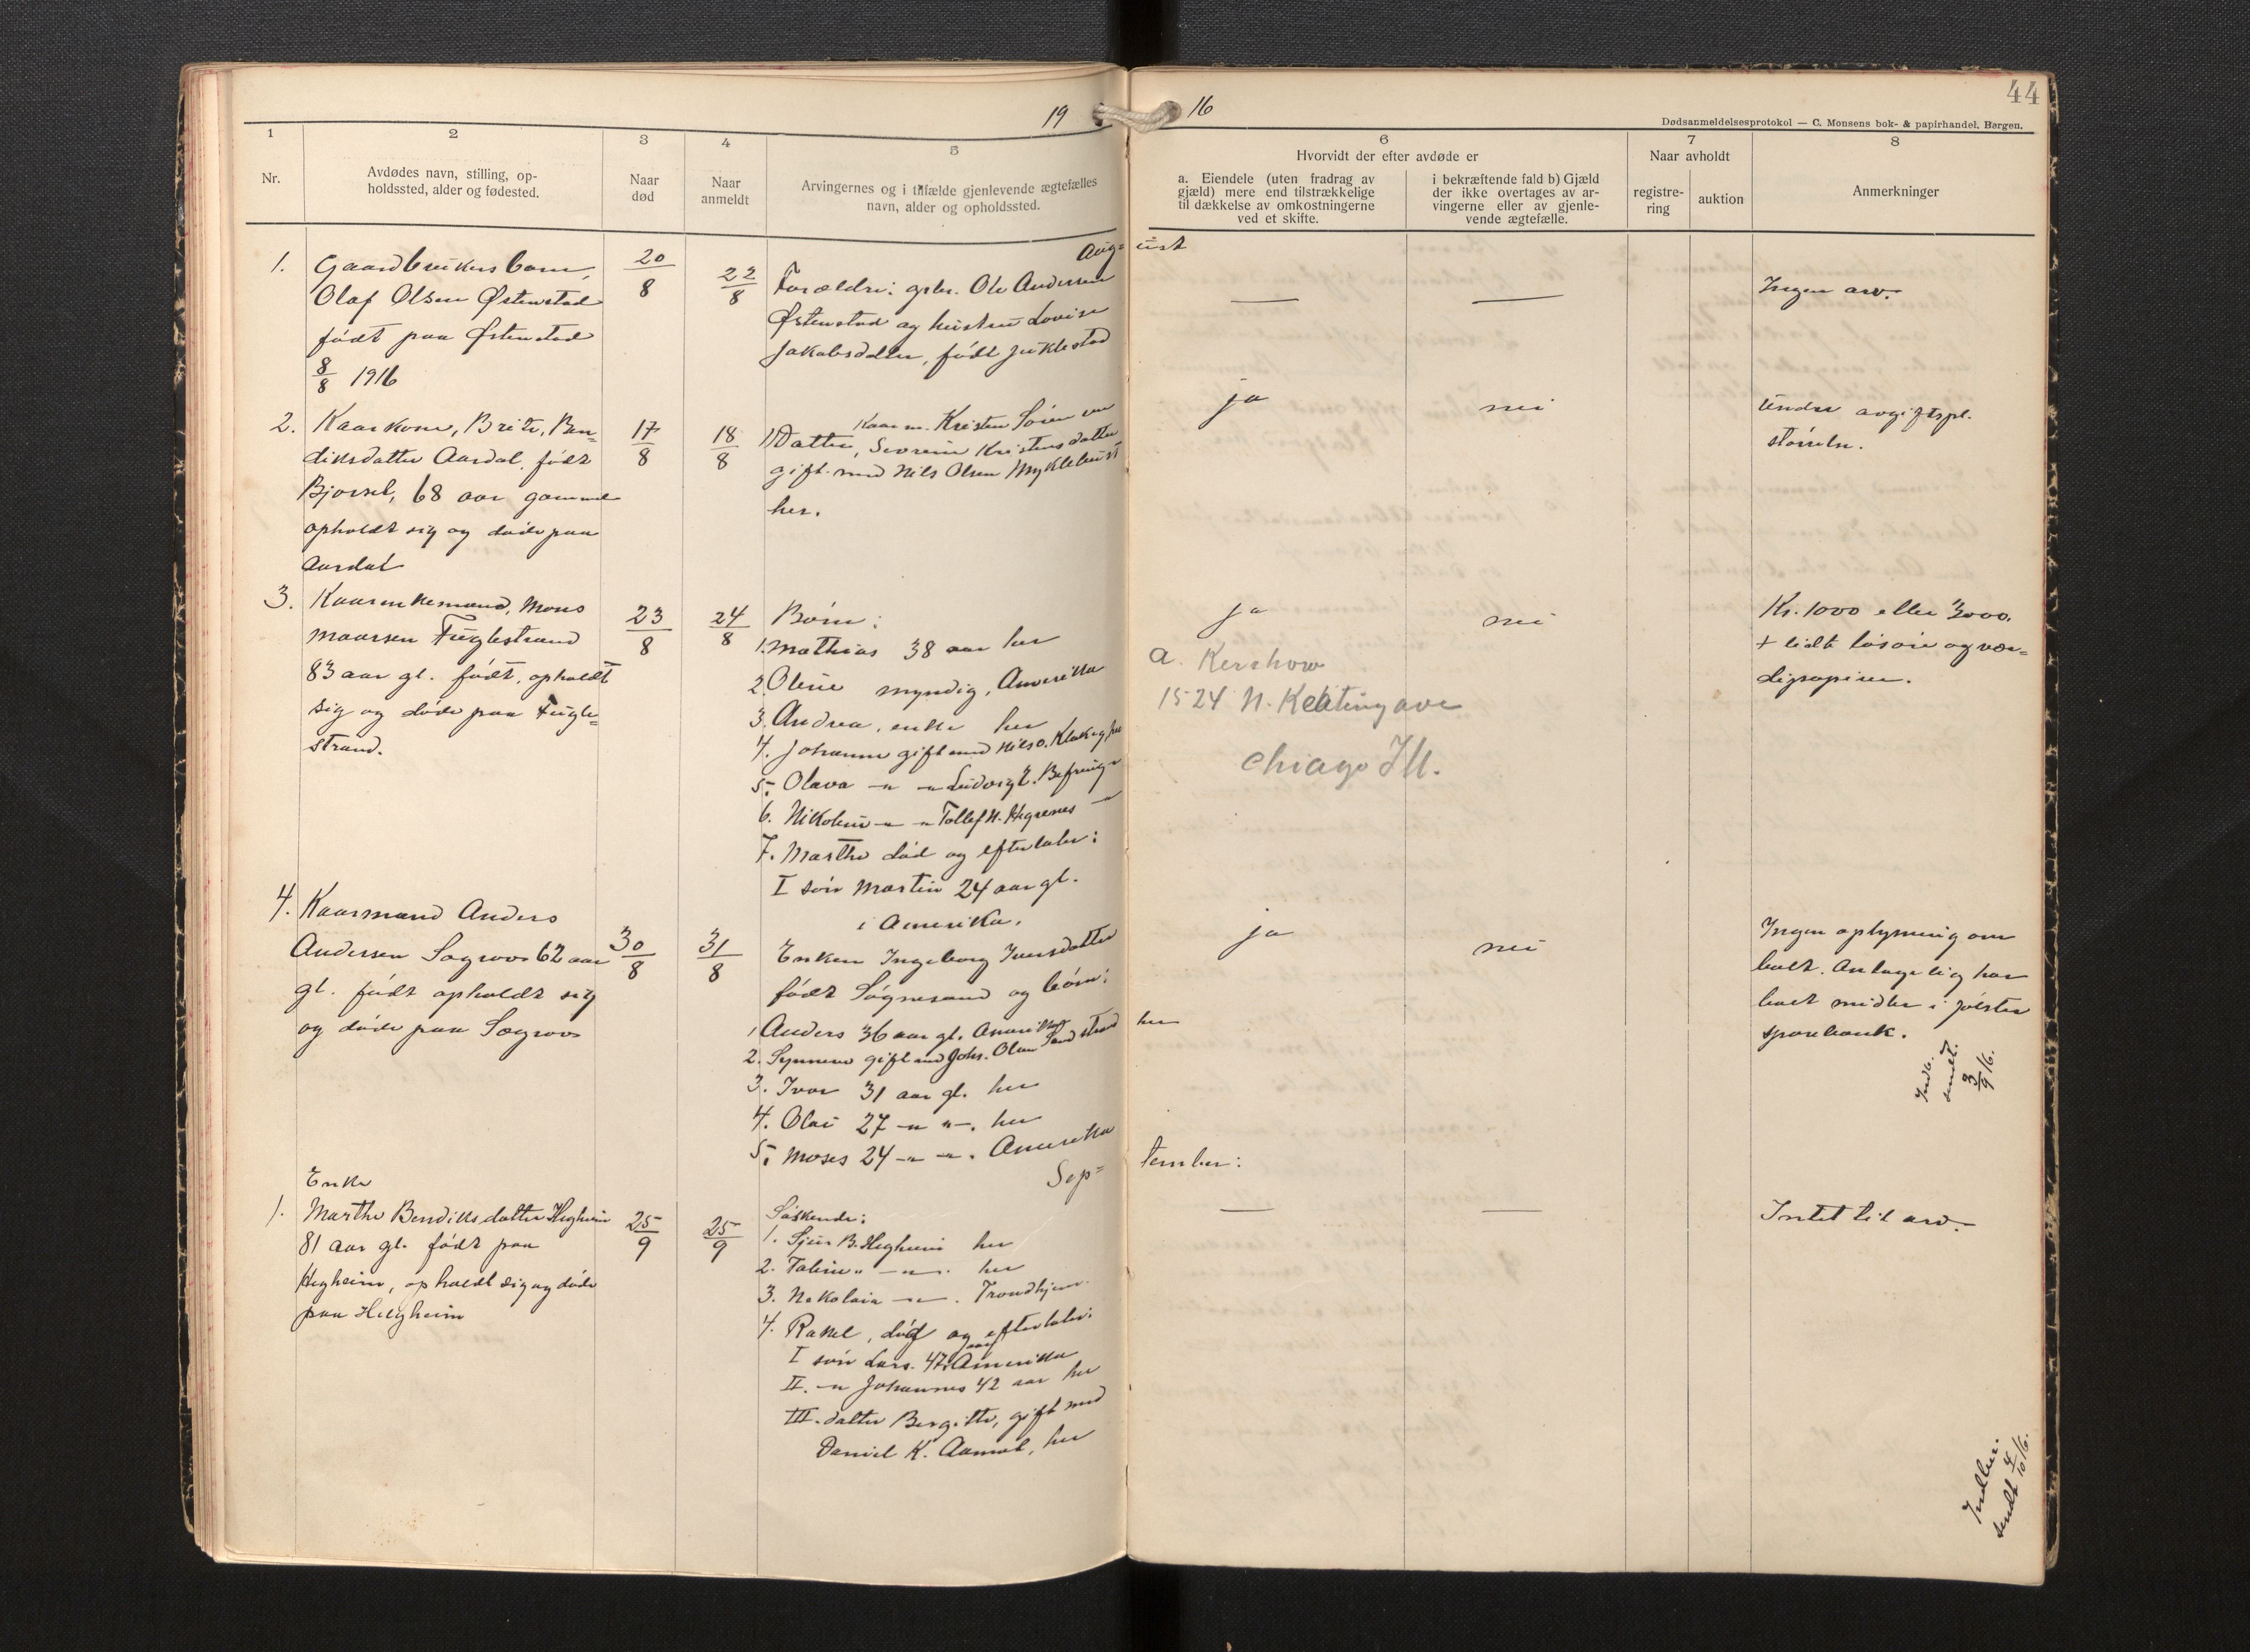 19
16
44
Dødsanmeldelsesprotokol — C. Monsens bok- & papirhandel, Bergen.
1
2
3
4
5
6
7
8
Nr.
Avdødes navn, stilling, op-
holdssted, alder og fødested.
Naar
død
Naar
anmeldt
Arvingernes og i tilfælde gjenlevende ægtefælles
navn, alder og opholdssted.
Hvorvidt der efter avdøde er
a. Eiendele (uten fradrag av
gjæld) mere end tilstrækkelige
til dækkelse av omkostningerne
ved et skifte.
i bekræftende fald b) Gjæld
der ikke overtages av ar-
vingerne eller av gjenle-
vende ægtefælle.
Naar avholdt
registre-
ring
auktion
Anmerkninger
Aug=
ust
1.
Gaardbrukers barn,
Olaf Olsen Østenstad
født paa Østenstad
8/8 1916
20/8
22/8
Forældre: gbr. Ole Andersen
Østenstad og hustru Lovise
Jakobsdatter, født Juklestad
—
—
Ingen arv.
2.
Kaarkone, Brite, Ben=
diksdatter Aardal, født
68 aar gammel
opholdt sig og døde paa
Aardal
17/8
18/8
Kaarm. Kristen
1) Datter, Severine Kristensdatter
gift med Nils Olsen Myklebust
her.
ja
nei
Under avgiftspl.
størrelse.
3.
Kaarenkemand, Mons
Monsen Fuglestrand
83 aar gl. født, opholdt
sig og døde paa Fugle=
strand.
23/8
24/8
Børn:
1. Mathias 38 aar her
2. Oline myndig, Amerika
3. Andrea, enke her
4. Johanne gift med Nils O. Klakeg, her
5. Olava -"- -"- Ludvig L. Befring -"-
6. Nikoline -"- -"- Tollef N. Hegrenes -"-
7. Marthe død og efterlater:
I søn Martin 24 aar gl.
i Amerika.
ja
nei
Kr. 1000 eller 3000.
+ lidt løsøre og vær=
digpapirer.
A. Kershow
1524 N. Keating ave
Chiago Ill.
4.
Kaarmand Anders
Andersen Søgrov 62 aar
gl. født opholdt sig
og døde paa Søgrov
30/8
31/8
Enken Ingeborg Iversdatter
født Søgnesand og børn:
1. Anders 36 aar gl. Amerika
2. Synneve gift med Johs. Olsen Sandstrand
her
3. Ivar 31 aar gl. her
4. Olai 27 -"- "-. her
5. Moses 24 -"- -"-. Amerika
ja
nei
Ingen oplysning om
belt. Antagelig har
havt midler i Jølster
sparebank.
Indb.
sendt
3/9 16.
Sep=
tember:
1.
Enke
Marthe Bendiksdatter Hegheim
81 aar gl. født paa
Hegheim, opholdt sig og døde
paa Helgheim
25/9
25/9
Søskende:
1. Sjur B. Hegheim her
2. Taline " -"-. her
3. Nikolai -"-. Trondhjem
4. Rakel, død og efterlater:
I søn Lars. 47 aar Amerika
II. -"- Johannes 42 aar her
III. datter Bergitte, gift med
Daniel K. Aamot, her
—
—
Intet til arv.
Indber.
sendt 4/10 16.